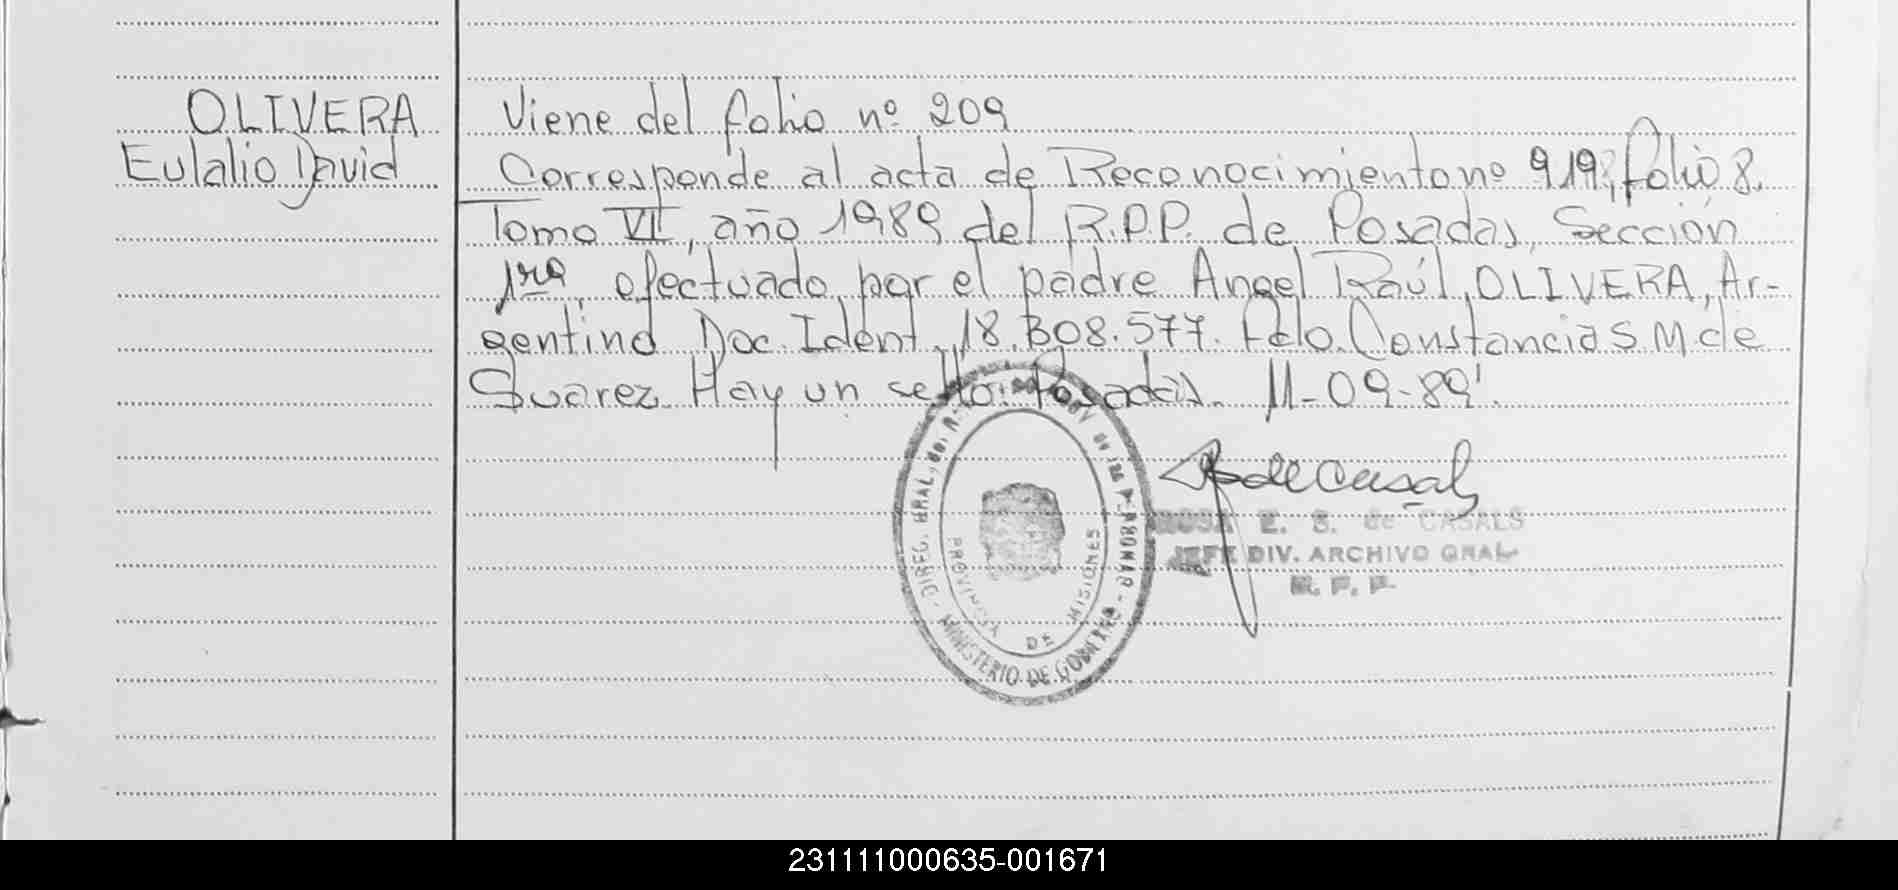 OLIVERA
Eulalio David
Viene del folio nº 209
Corresponde al acta de Reconocimiento nº 919, folio 8,
Tomo VII, año 1989 del R.P.P. de Posadas, Sección
1ra, efectuado por el padre Angel Raúl, OLIVERA, Ar-
gentino Doc. Ident. 18.308.577. Fdo. Constancia S. M. de
Suarez. Hay un sello: Posadas. 11-09-89'.
DIREC. GRAL. de las PERSONAS
MINISTERIO DE GOBIERNO
PROVINCIA DE MISIONES
ROSA E. S. de CASALS
JEFE DIV. ARCHIVO GRAL
R. P. P.
231111000635-001671